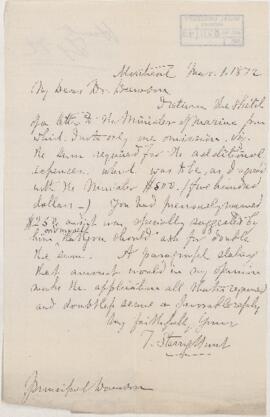 Montreal Mar. 1. 1872
My Dear Dr. Dawson
I return the sketch
of a letter to the Minister of Marine from
which I notice one omission, viz.
the sum required for the additional
expenses, which was to be, as I agreed
with the Minister $500 (five hundred
dollars —) You had previously named
$250 and it was specially suggested by
him, and myself that you should ask for double
the sum. A paragraph stating
that amount would in my opinion
make the application all that is required
and doubtless secure a favorable reply
Very faithfully Yours
T. Sterry Hunt
Principal Dawson